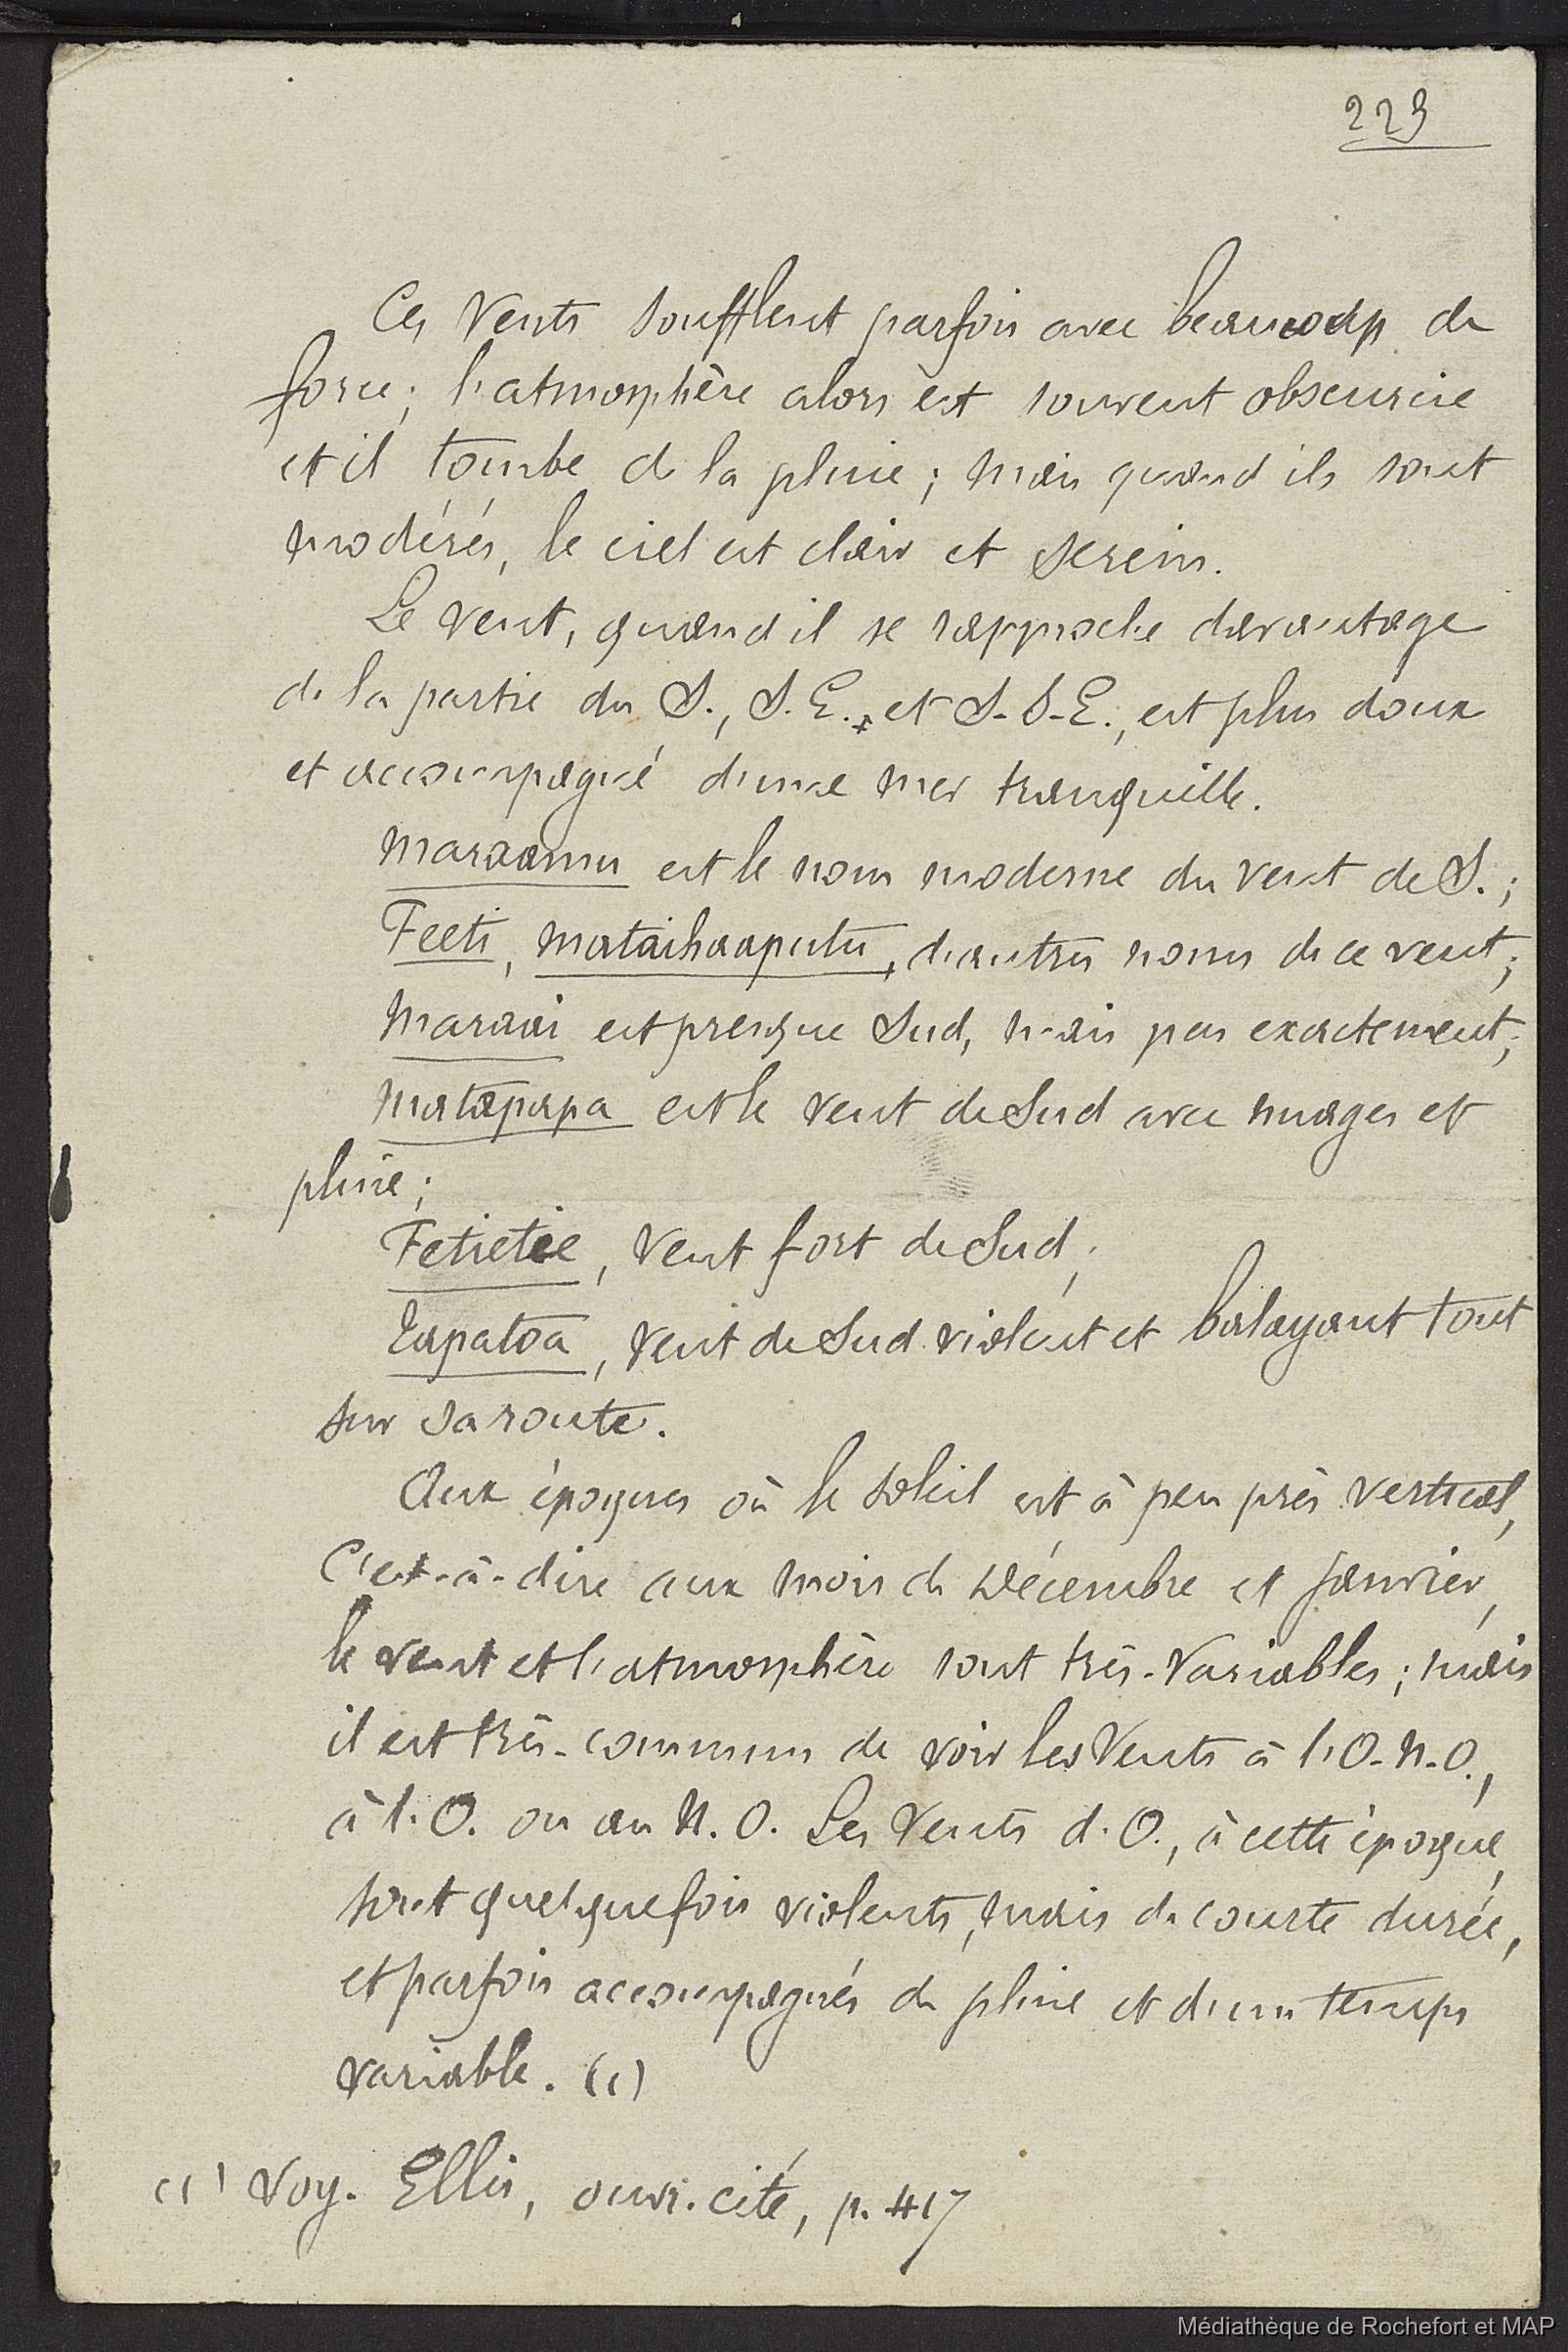 223
Ces vents soufflent parfois avec beaucoup de
force; l'atmosphère alors est souvent obscurcie
et il tombe de la pluie; mais quand ils sont
modérés, le ciel est clair et serein.
Le vent, quand il se rapproche davantage
de la partie du S., S.E., et S-S-E., est plus doux
et accompagné d'une mer tranquille.
Maraamu est le nom moderne du vent de S.;
Feeti, Mataihaaputu, d'autres noms de ce vent;
Maraai est presque Sud, mais pas exactement;
Matapapa est le vent de Sud avec nuages et
pluie;
Fetietie, vent fort de Sud;
Tapatoa, vent de Sud violent et balayant tout
sur sa route.
Aux époques où le soleil est à peu près vertical,
c'est-à-dire aux mois de Décembre et Janvier,
le vent et l'atmosphère sont très-variables; mais
il est très-commun de voir les vents à l'O-N-O.,
à l'O. ou au N.O. Les vents d'O., à cette époque,
sont quelquefois violents, mais de courte durée,
et parfois accompagnés de pluie et d'un temps
variable. (1)
(1) Voy. Ellis, ouvr. cité, p. 417
Médiathèque de Rochefort et MAP